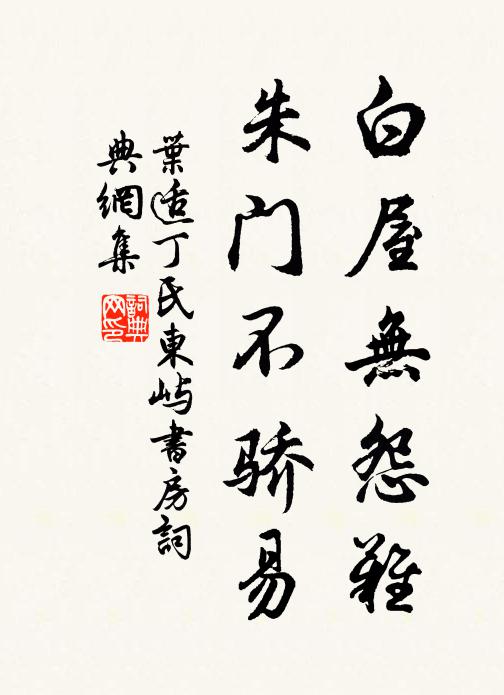 白屋無怨難
朱门不骄易
葉適丁氏東嶼書房詞
典網集
詞典网印